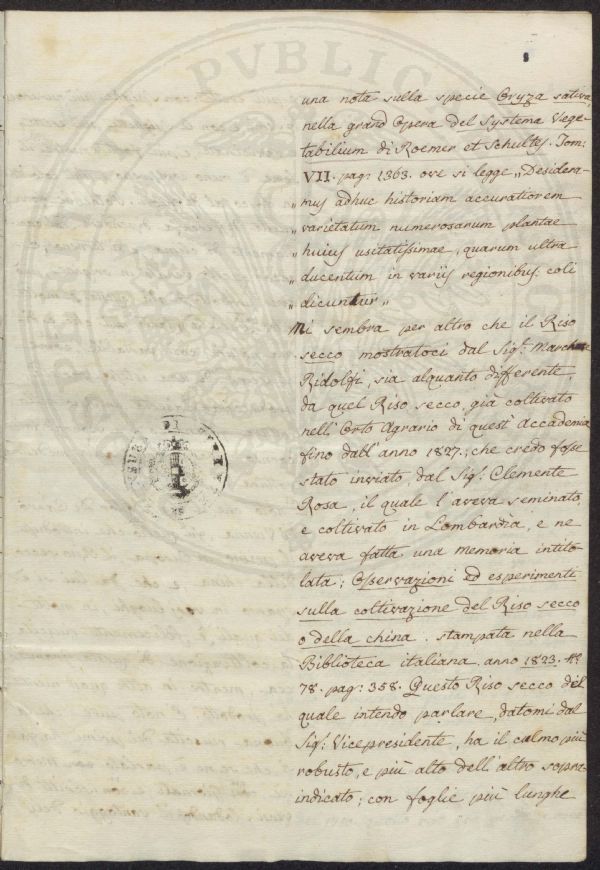 una nota sulla specie Oryza sativa,
nella grand'Opera del Systema Vege-
tabilium di Roemer et Schultes. Tom:
VII. pag: 1363. ove si legge „Desidera-
„mus adhuc historiam accuratiorem
„varietatum numerosarum plantae
„huius usitatissimae, quarum ultra
„ducentum in variis regionibus coli
„dicuntur„
Mi sembra per altro che il Riso
secco mostratoci dal Sig.e Marchese
Ridolfi, sia alquanto differente,
da quel Riso secco, già coltivato
nell'Orto Agrario di quest'Accademia
fino dall'anno 1827., che credo fosse
stato inviato, dal Sig: Clemente
Rosa, il quale l'aveva seminato,
e coltivato in Lombardia, e ne
aveva fatta una memoria intito-
lata; Osservazioni ed esperimenti
sulla coltivazione del Riso secco
o della china. stampata nella
Biblioteca italiana, anno 1823. No
78. pag: 358. Questo Riso secco del
quale intendo parlare, datomi dal
Sig: Vicepresidente, ha il culmo più
robusto, e più alto dell'altro sopra-
indicato; con foglie più lunghe
PVBLIC